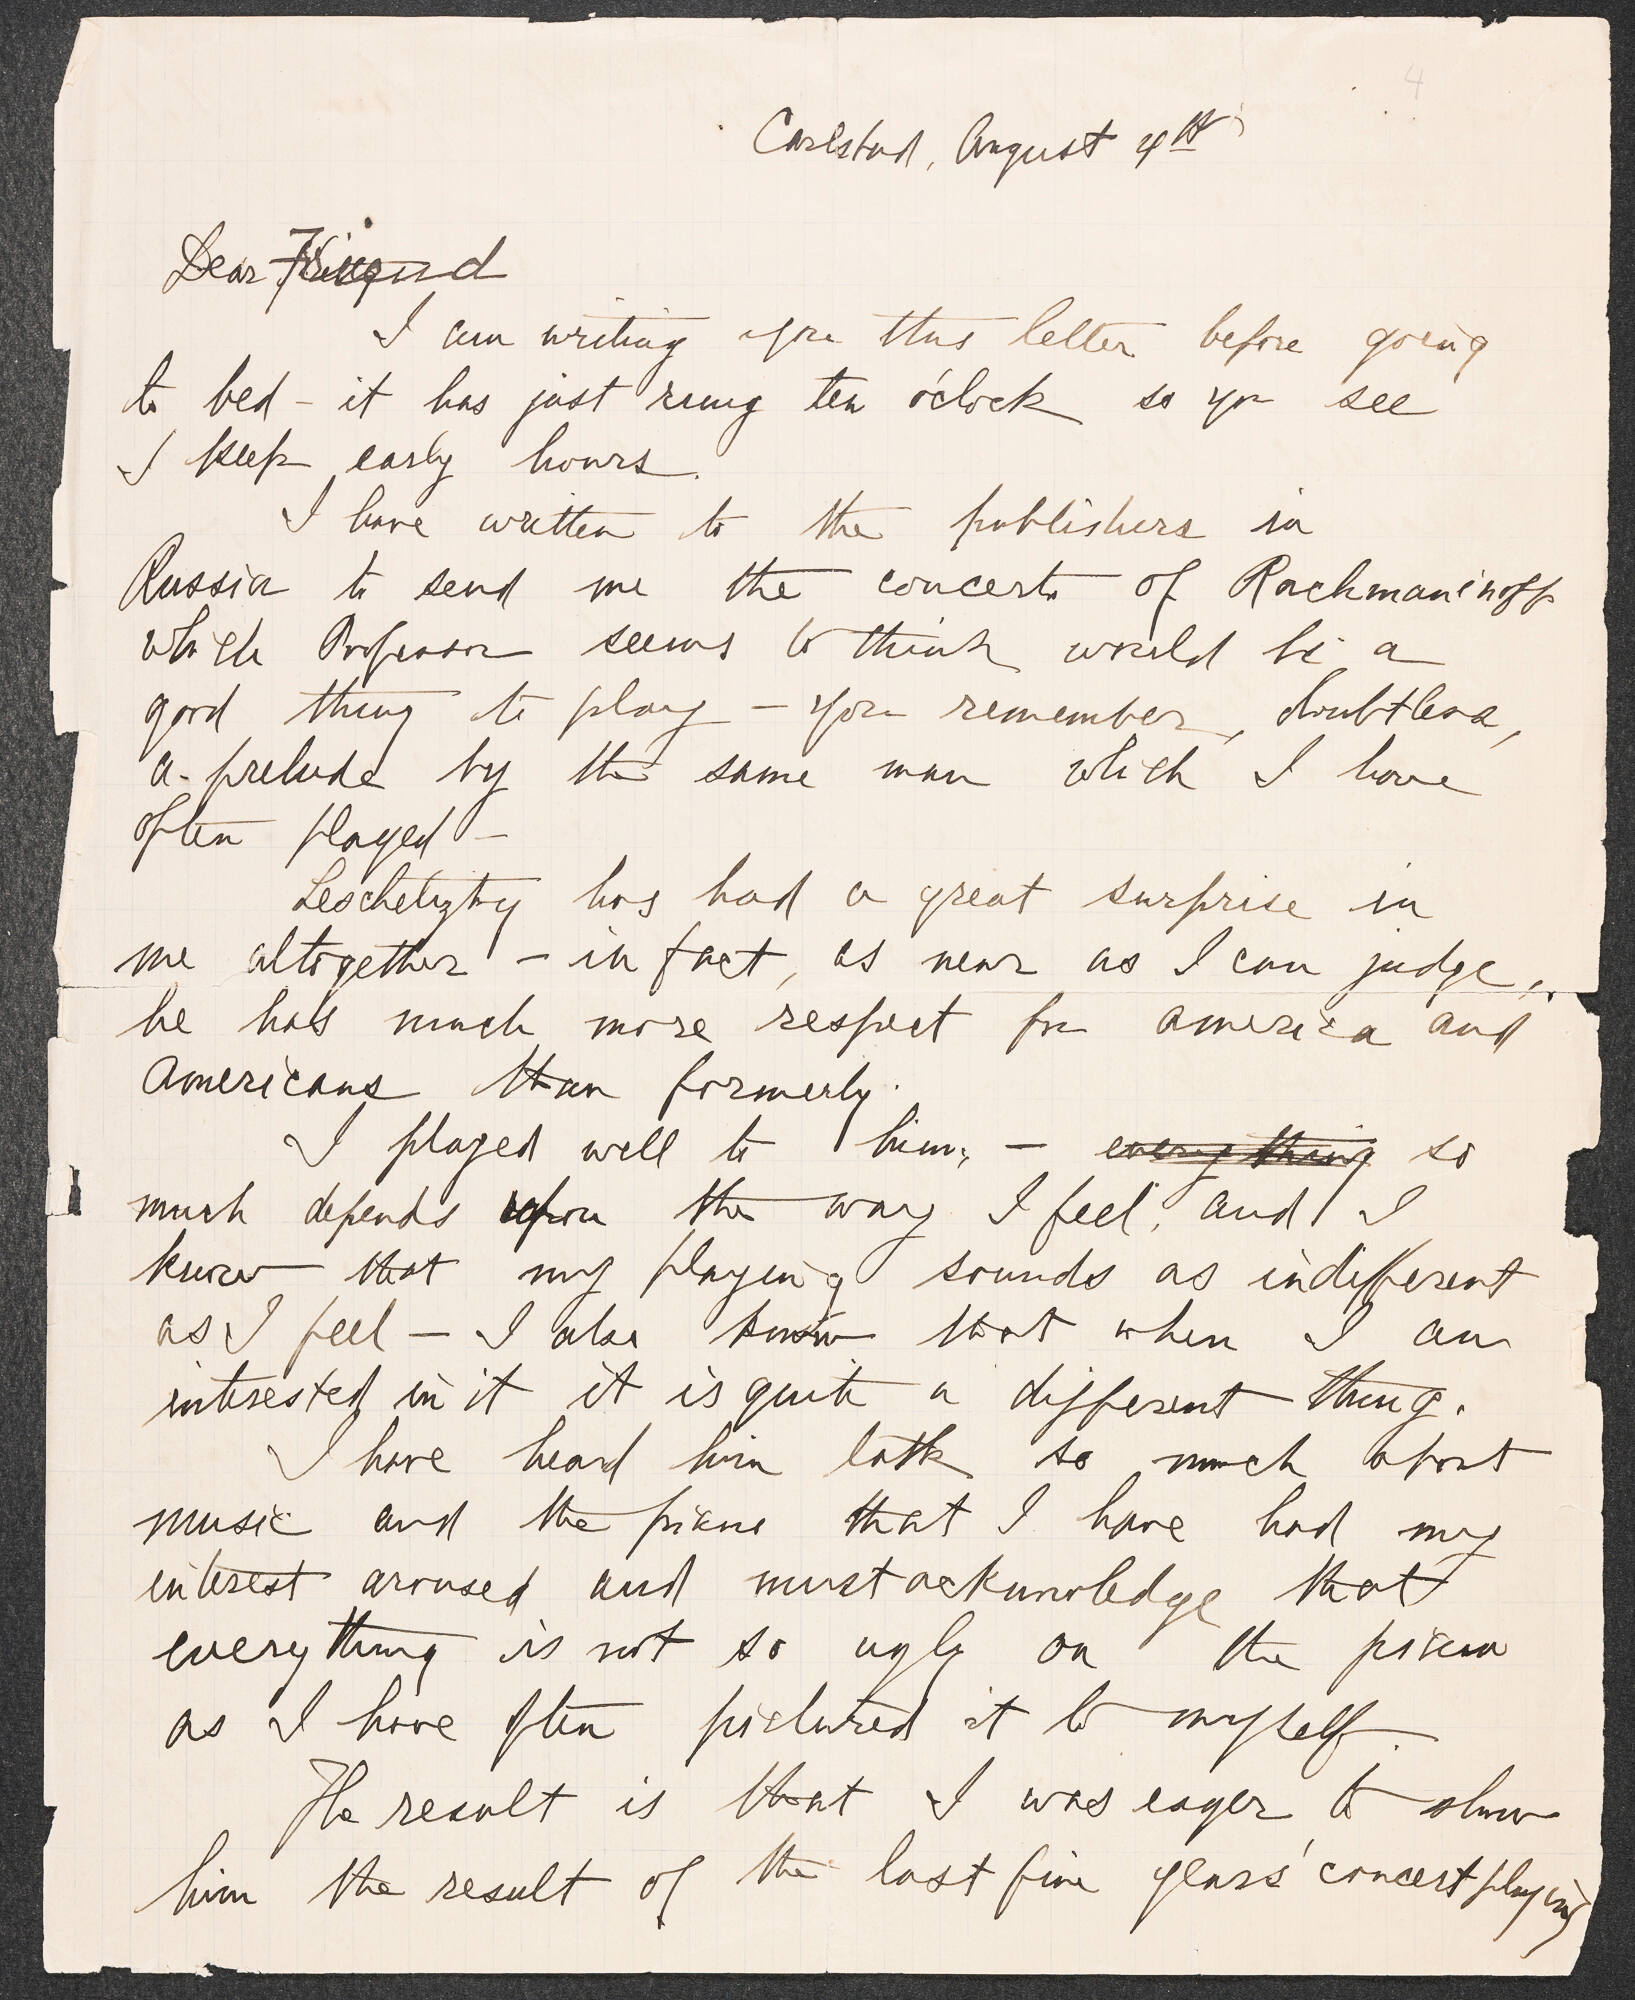 4
Carlsbad, August 4th
Dear
I am writing you this letter before going
to bed – it has just rung ten o'clock so you see
I keep early hours.
I have written to the publishers in
Russia to send me the concerto of Rachmaninoff
which Professor seems to think would be a
good thing to play – you remember, doubtless,
a prelude by the same man which I have
often played –
Leschetizky has had a great surprise in
me altogether – in fact, as near as I can judge,
he has much more respect for America and
Americans than formerly.
I played well to him, – everything so
much depends upon the way I feel, and I
know that my playing sounds as indifferent
as I feel – I also know that when I am
interested in it it is quite a different thing.
I have heard him talk so much about
music and the piano that I have had my
interest aroused and must acknowledge that
everything is not so ugly on the piano
as I have often pictured it to myself.
The result is that I was eager to show
him the result of the last five years' concert playing